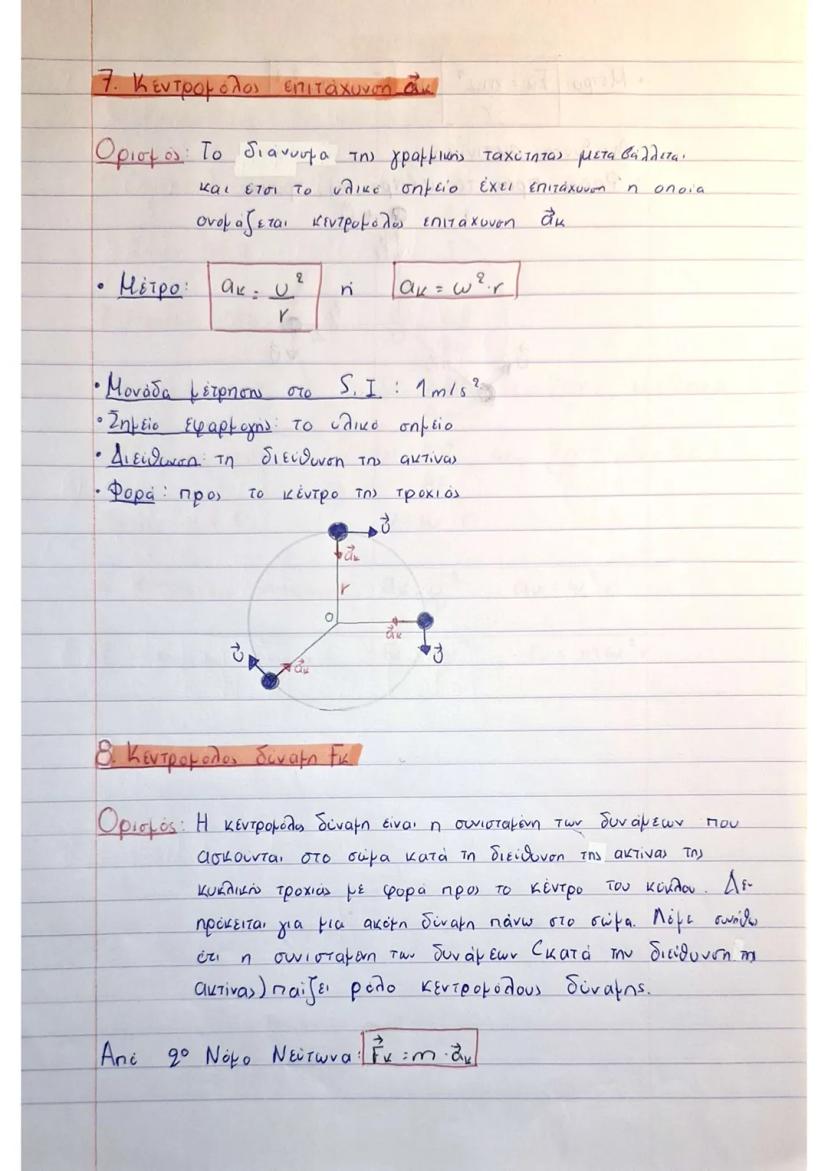 7. Κεντρομόλος επιτάχυνση a⃗κ
Ορισμός: Το διάνυσμα της γραμμικής ταχύτητας μεταβάλλεται
και έτσι το υλικό σημείο έχει επιτάχυνση η οποία
ονομάζεται κεντρομόλος επιτάχυνση a⃗κ
• Μέτρο: aκ = υ²/r ή aκ = ω²·r
• Μονάδα μέτρησης στο S.I : 1m/s²
• Σημείο εφαρμογής: το υλικό σημείο
• Διεύθυνση: τη διεύθυνση της ακτίνας
• Φορά: προς το κέντρο της τροχιάς
υ⃗
a⃗κ
r
O
a⃗κ
υ⃗
υ⃗
a⃗κ
8. Κεντρομόλος δύναμη Fκ
Ορισμός: Η κεντρομόλος δύναμη είναι η συνισταμένη των δυνάμεων που
ασκούνται στο σώμα κατά τη διεύθυνση της ακτίνας της
κυκλικής τροχιάς με φορά προς το κέντρο του κύκλου. Δε
πρόκειται για μια ακόμη δύναμη πάνω στο σώμα. Λέμε
ότι η συνισταμένη των δυνάμεων (κατά την διεύθυνση της
ακτίνας) παίζει ρόλο κεντρομόλους δύναμης.
Από 2º Νόμο Νεύτωνα: F⃗κ = m·a⃗κ